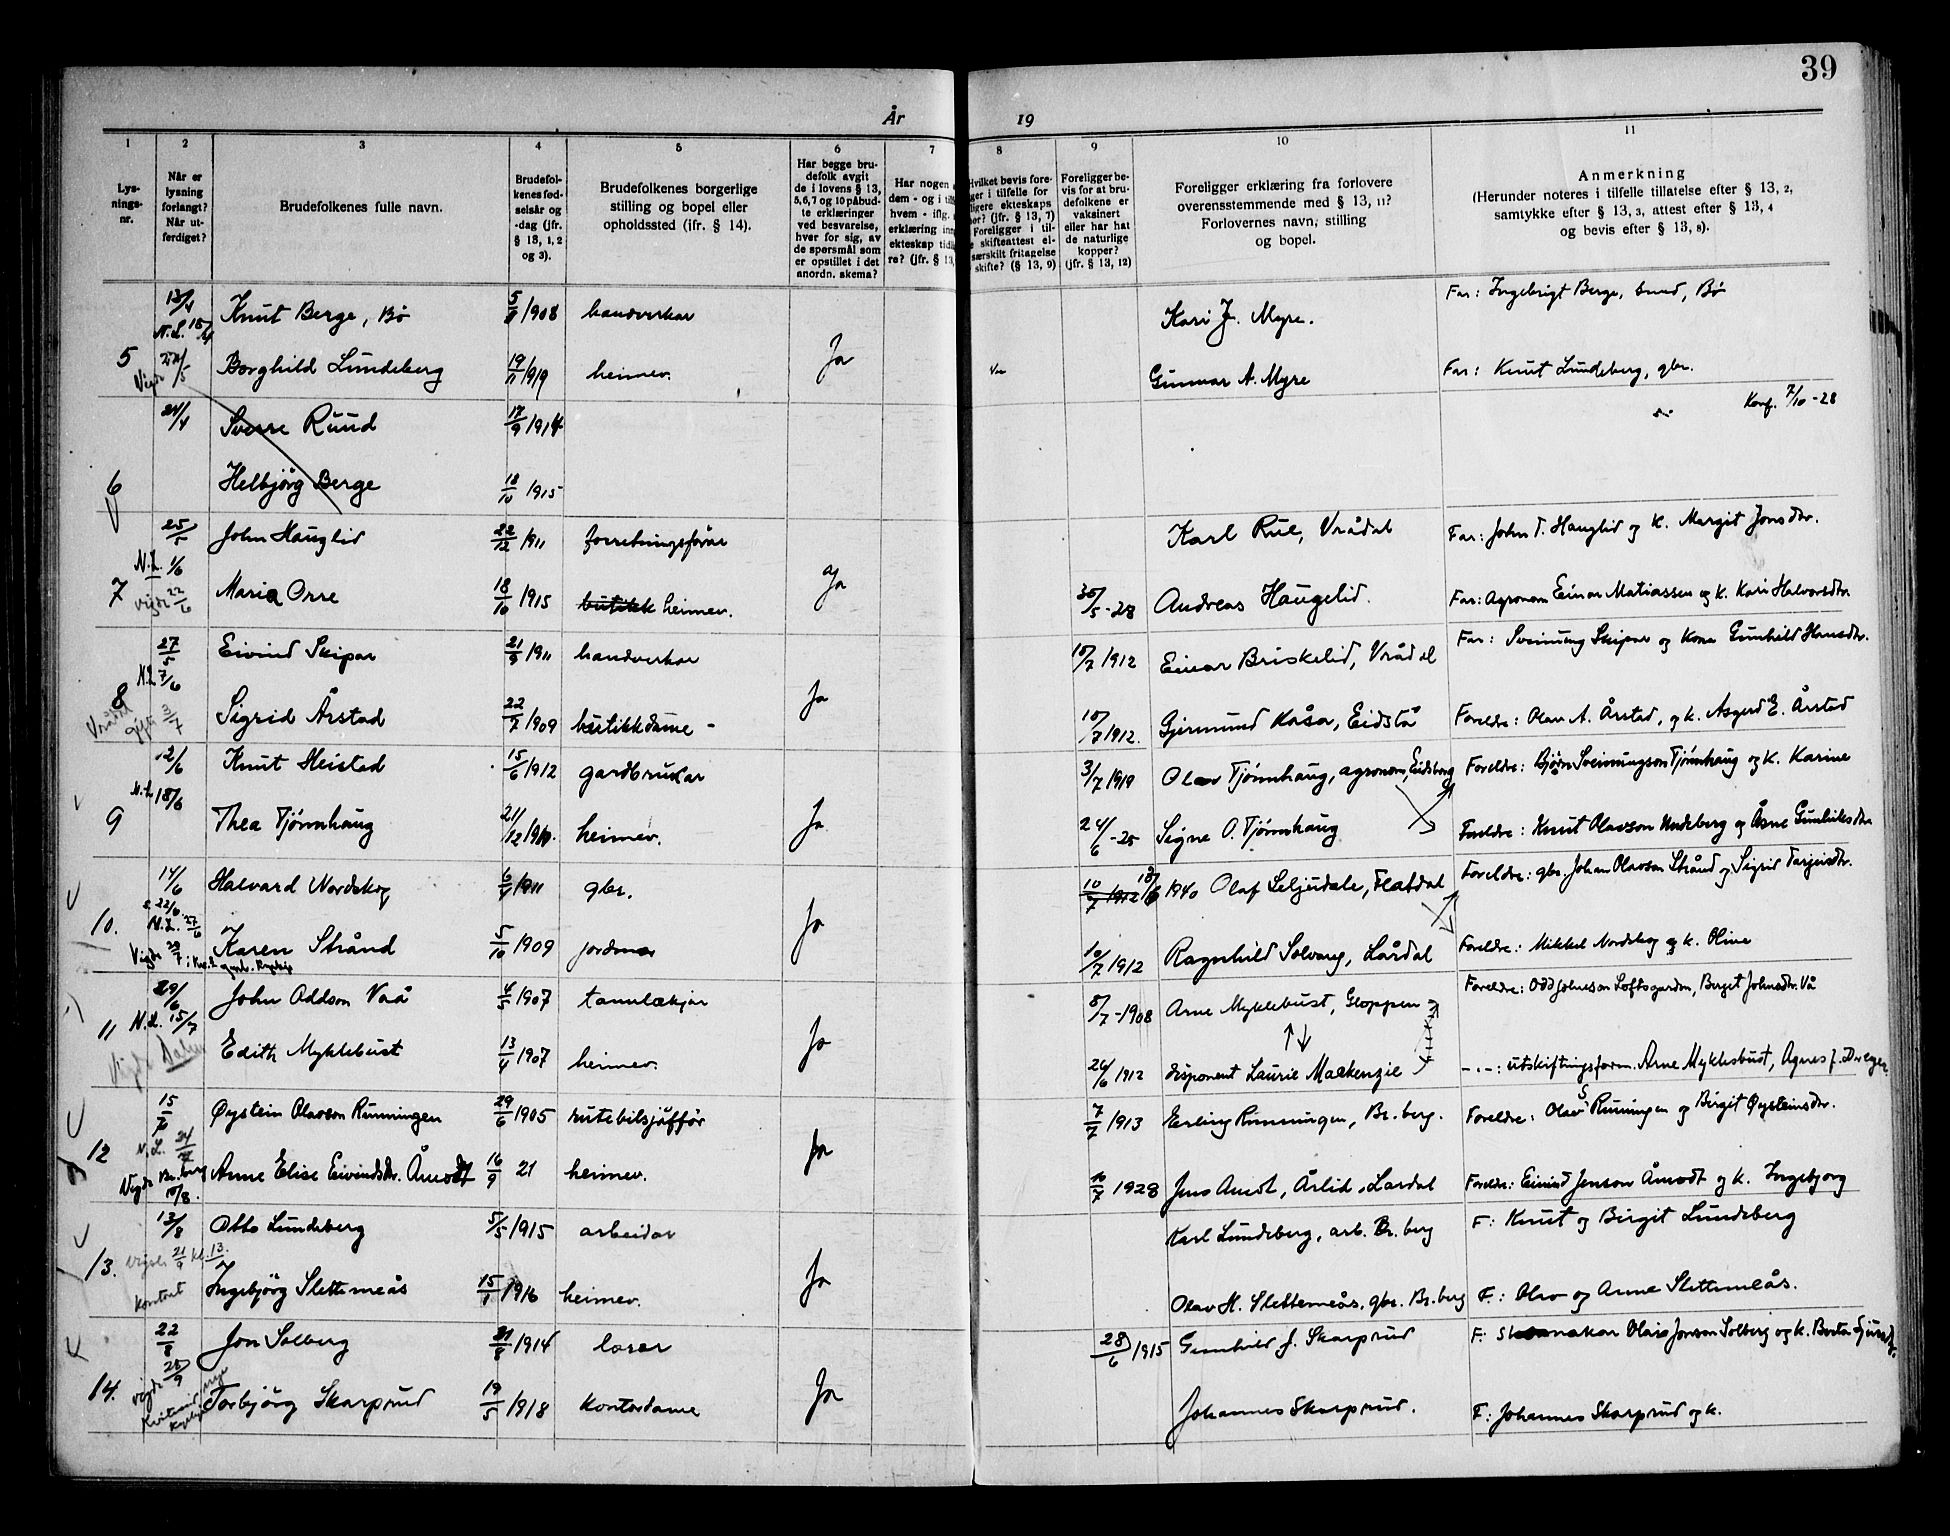 39
År 19
1 2 3 4 5 6 7 8 9 10 11
Lysningsnr.
Når er lysning forlangt? Når utferdiget?
Brudefolkenes fulle navn.
Brudefolkenes fødselsår og -dag (jfr. § 13, 1, 2 og 3).
Brudefolkenes borgerlige stilling og bopel eller opholdssted (jfr. § 14).
Har begge brudefolk avgit de i lovens § 13, 5, 6, 7 og 10 påbudte erklæringer ved besvarelse, hver for sig, av de spørsmål som er opstillet i det anordn. skema?
Har nogen
dem - og i til
hvem - iflg.
erklæring in
ekteskap tid
re? (jfr. § 13,
Hvilket bevis fore-
ger i tilfelle for
ligere ekteskaps
hør? (jfr. § 13, 7)
Foreligger i til-
e skifteattest el-
særskilt fritagelse
skifte? (§ 13, 9)
Foreligger bevis for at brudefolkene er vaksinert eller har hat de naturlige kopper? (jfr. § 13, 12)
Foreligger erklæring fra forlovere overensstemmende med § 13, 11? Forlovernes navn, stilling og bopel.
Anmerkning
(Herunder noteres i tilfelle tillatelse efter § 13, 2, samtykke efter § 13, 3, attest efter § 13, 4 og bevis efter § 13, 8).
13/4 Knut Berge, Bø 5/8 1908 handverkar Kari J. Myre. Far: Ingebrigt Berge, smed, Bø
N.L. 15/4
5 Vigde 22/5 Borghild Lundeberg 19/11 1919 heimev. Ja Gunnar A. Myre Far: Knut Lundeberg, gbr.
24/4 Sverre Ruud 17/9 1914 Konf. 7/10-28
6 Helbjörg Berge 18/10 1915
25/5 John Hauglid 22/12 1911 forretningsförar Karl Rue, Vrådal Far: John T. Hauglid og k. Margit Jonsdtr.
N.L. 1/6
7 vigde 22/6 Maria Orre 18/10 1915 butikk heimev. Ja 30/5-28 Andreas Haugelid. Far: Agronom Einar Matiassen og k. Kari Halvorsdtr.
27/5 Eivind Skipar 21/9 1911 handverkar 10/7 1912 Einar Briskelid, Vrådal Far: Sveinung Skipar og kona Gunhild Hansdtr.
N.L. 7/6
8 Vrådal gifte 3/7 Sigrid Årstad 22/7 1909 butikkdame - Ja 10/7 1912. Gjermund Kåsa, Eidstå Foreldre: Olav A. Årstad, og k. Asgerd E. Årstad
12/6 Knut Heistad 15/6 1912 gardbrukar 3/7 1919 Olav Tjönnhaug, agronom, Eidsborg Foreldre: Björn Sveinungson Tjönnhaug og k. Karine
N.L. 18/6
9 Thea Tjönnhaug 21/12 1910. heimev. Ja 24/6-25 Signe O. Tjönnhaug Foreldre: Knut Olavson Undeberg og Åsne Gunleiksdtr.
14/6 Halvard Nordskog 6/4 1911 gbr. 10/7 1912 18/6 1940 Olaf Seljedale, Flatdal Foreldre: gbr. Johan Olavson Strånd og Sigrid Tarjeisdtr.
N.L. 27/6
10. Vigde 20/7 Karen Strånd 5/10 1909 jordmor Ja 10/7 1912 Ragnhild Solvang, Lårdal Foreldre: Mikkel Nordskog og k. Oline
29/6 John Oddson Vaá 4/5 1907 tannlækjar 8/7-1908 Arne Myklebust, Gloppen Foreldre: Odd Johnson Loftsgarden, Birget Johnsdtr. Vå
N.L. 15/7
11 Vigde Dalen Edith Myklebust 13/4 1907 heimev. Ja 26/6 1912 disponent Laurie Mackenzie -.-: utskiftingsform. Arne Myklebust, Agnes f.
15/7 Öystein Olavson Runningen 29/6 1905 rutebilsjåfför 7/7 1913 Erling Runningen, Br. berg. Foreldre: Olav S Runingen og Birgit Öysteinsdtr.
N.L. 24/7
12 Vigde Br. berg 10/8. Anne Elise Eivindsdtr. Åmodt 16/9 21 heimev. Ja 10/7 1928 Jens Åmodt, Årlid, Lårdal Foreldre: Eivind Jenson Åmodt og k. Ingebjorg
13/8 Otto Lundeberg 5/5 1915 arbeidar Karl Lundeberg, arb. Br. berg F: Knut og Birgit Lundeberg
13. vigde 21/9 kl. 13. kontort Ingebjörg Slettemeås 15/1 1916 heimev. Ja Olav H. Slettemeås, gbr. Br. berg F.: Olav og Anne Slettemeås.
22/8 Jon Solberg 21/8 1914 lærer 28/6 1915 Gunhild J. Skarprud F: Skomakar Olais Jonson Solberg og k. Berta
14. vigde 28/9 Torbjörg Skarprud 19/5 1918 kontordame Ja Johannes Skarprud. F: Johannes Skarprud og k.